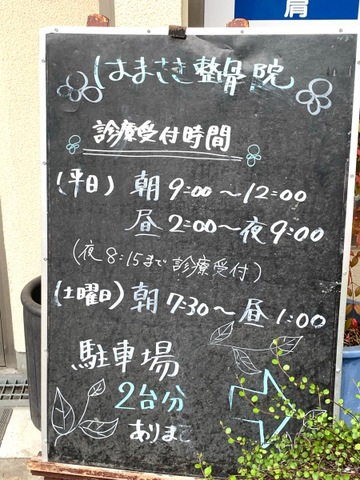 肩
はまさき整骨院
診療受付時間
(平日) 朝 9:00～12:00
昼 2:00～夜 9:00
(夜 8:15まで診療受付)
(土曜日) 朝 7:30～昼 1:00
駐車場
2台分
あります